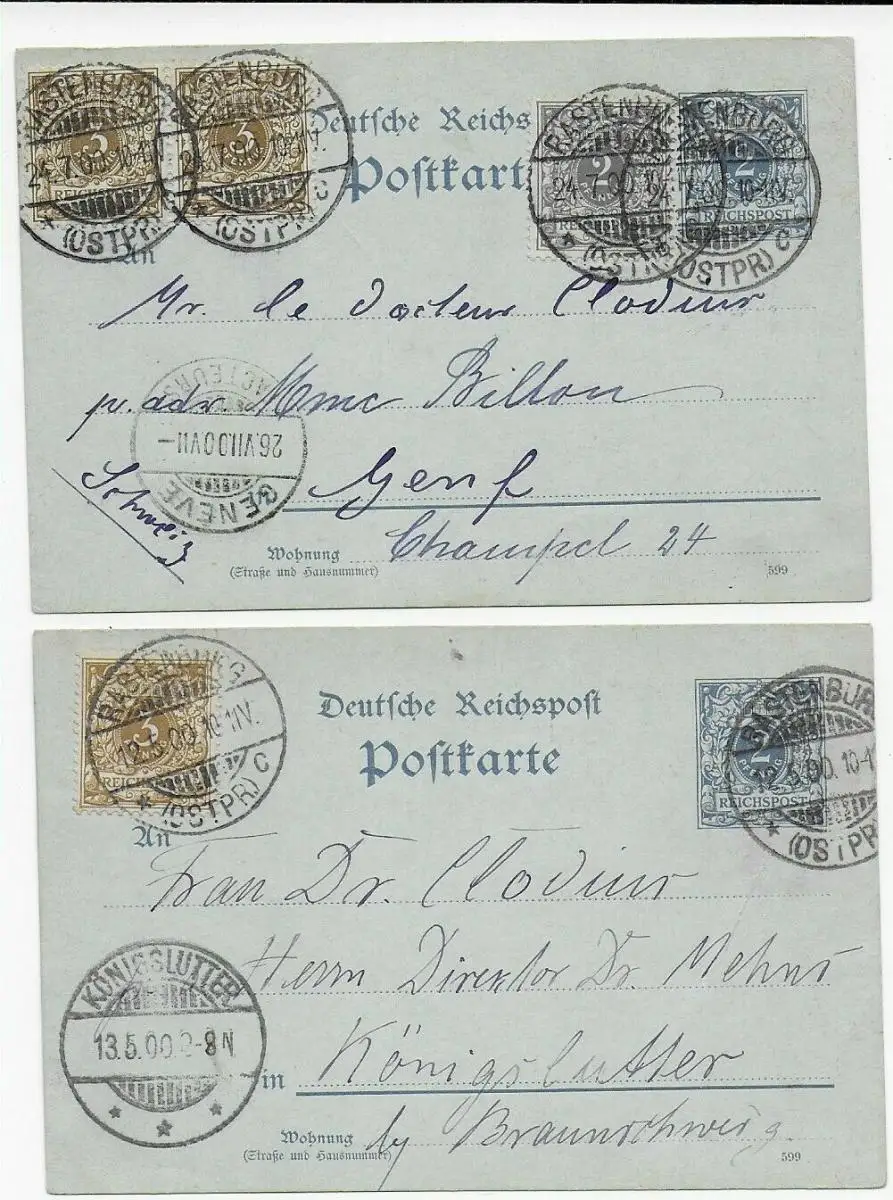 RASTENBURG
24.7.00.10-11V.
* (OSTPR) C
3
REICHSPOST
RASTENBURG
24.7.00.10-11V.
* (OSTPR) C
3
Deutsche Reichs
Postkart
RASTENBURG
24.7.00.10-11V.
* (OSTPR)
2
RASTENBURG
24.7.00.10-11V.
(OSTPR) C
2
REICHSPOST
An
Mr. le docteur Clodius
p. adr. Mme Billon
FACTEURS
26.VII.00 VII-
GENEVE
Genf
Schweiz
Champel 24
Wohnung
(Straße und Hausnummer)
599
RASTENBURG
12.5.00.10-11V.
* (OSTPR) C
3
REICHSPOST
Deutsche Reichspost
Postkarte
RASTENBURG
12.5.00.10-11
* (OSTPR)
2
PFENNIG
REICHSPOST
An
Frau Dr. Clodius
Herrn Direktor Dr. Mehns
KÖNIGSLUTTER
13.5.00. -8N
* * *
in Königslutter
by Braunschweig.
Wohnung
(Straße und Hausnummer)
599